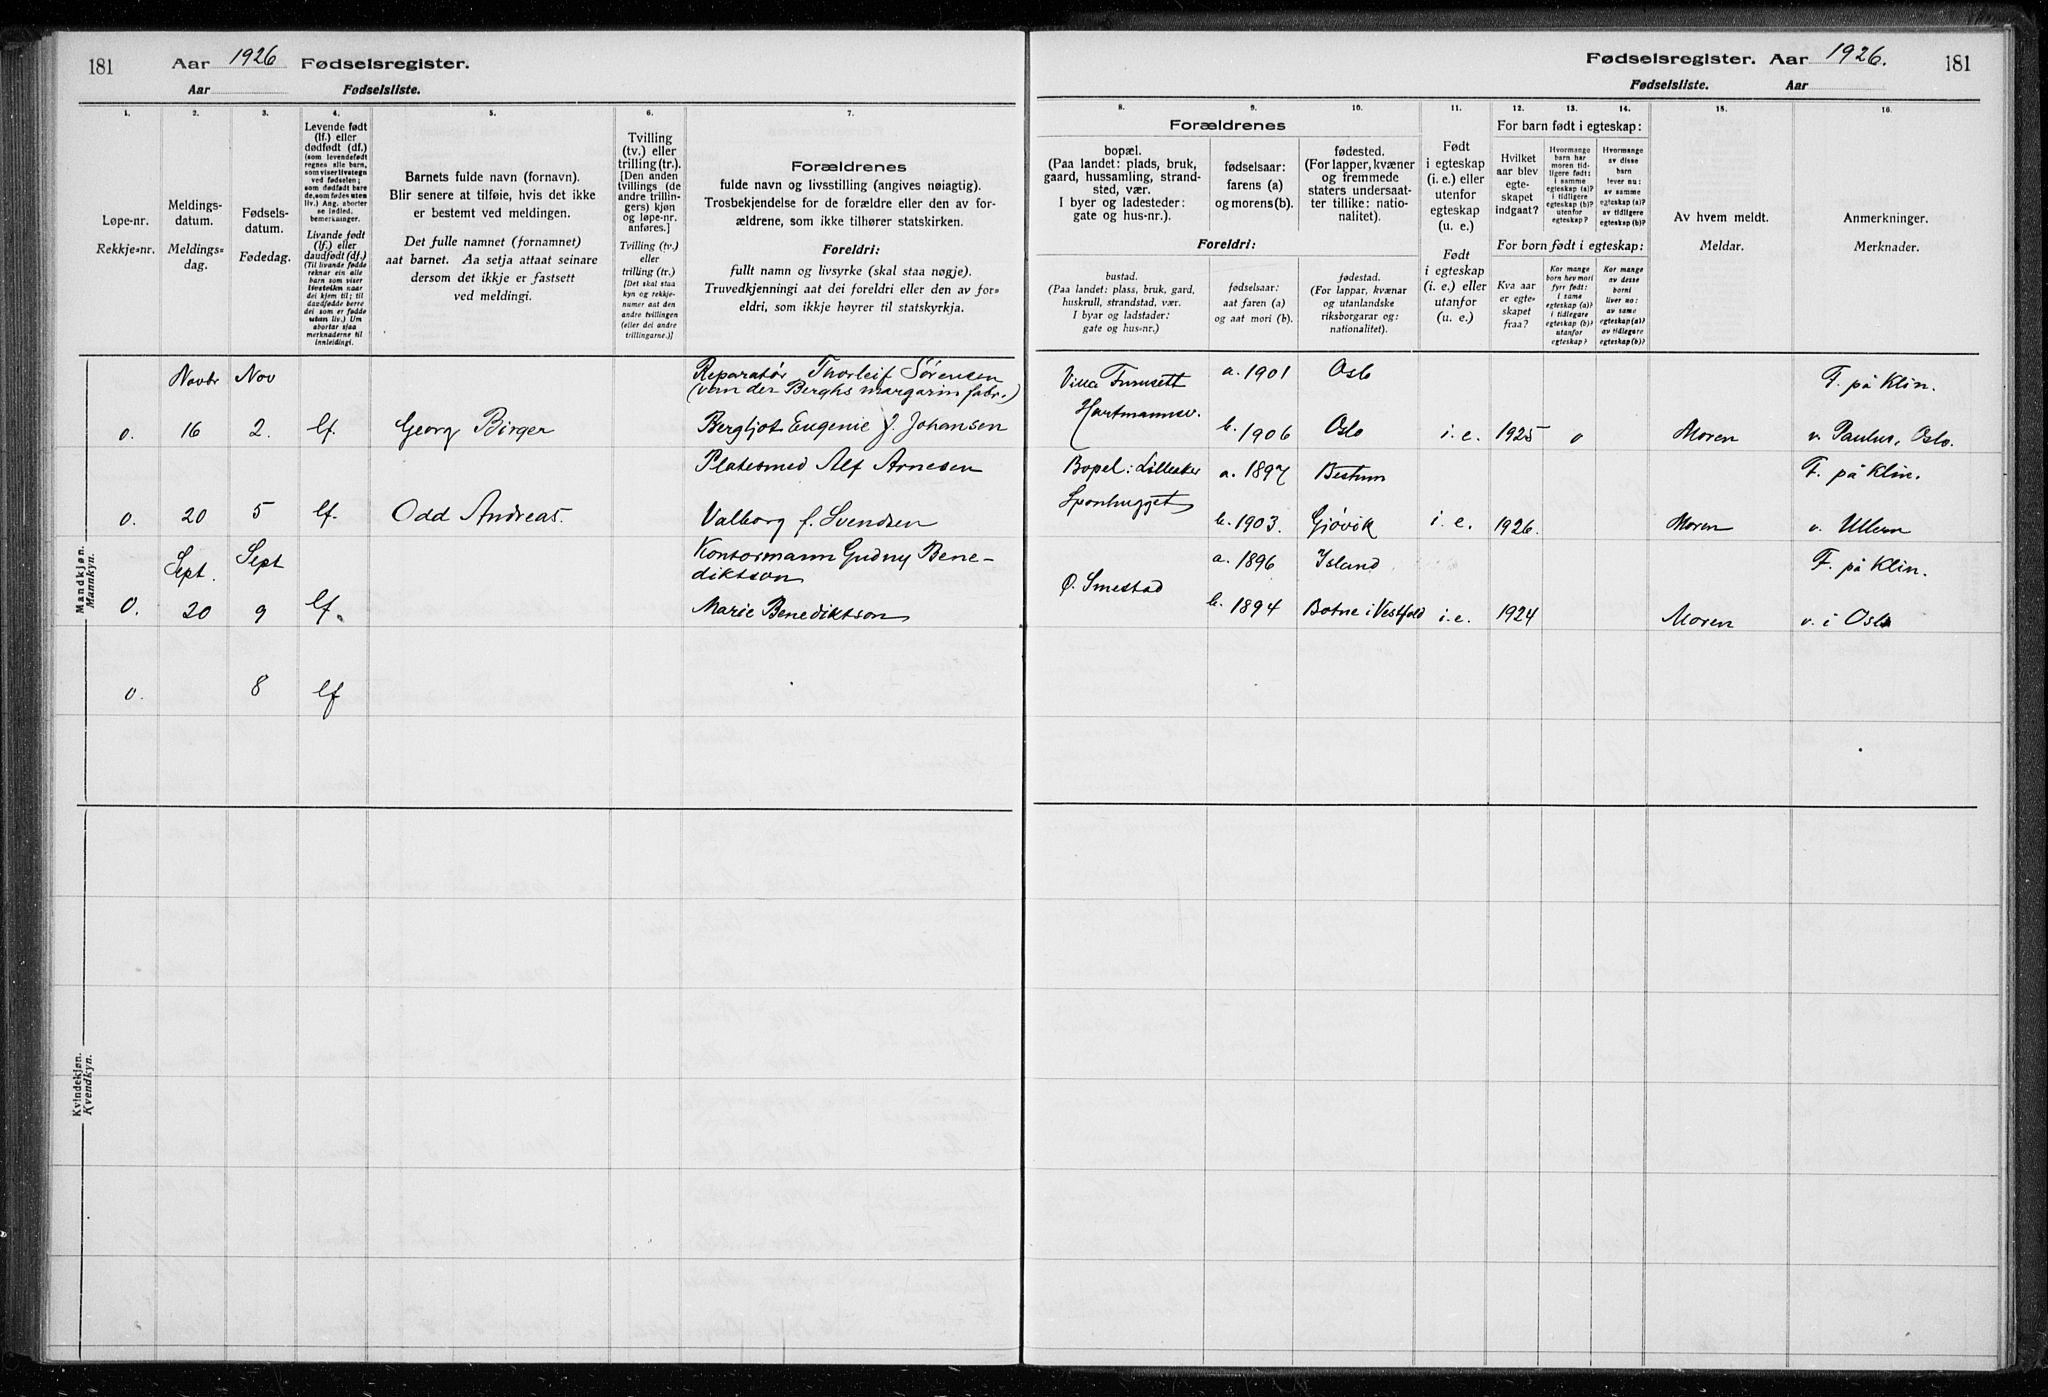 181 Aar 1926 Fødselsregister.
Aar Fødselsliste.
Fødselsregister. Aar 1926. 181
Fødselsliste. Aar
1. 2. 3. 4. 5. 6. 7.
Løpe-nr.
Rekkje-nr.
Meldings-
datum.
Meldings-
dag.
Fødsels-
datum.
Fødedag.
Levende født
(lf.) eller
dødfødt (df.)
(som levendefødt
regnes alle barn,
som viser livstegn
ved fødselen;
som dødfødt bare
de, som fødes uten
liv.) Ang. aborter
se indled.
bemerkninger.
Livande født
(lf.) eller
daudfødt (df.)
(Til livande fødde
reknar ein alle
barn som viser
livsteikn naar
dei kjem til; til
daudfødde berre
dei som er fødde
utan liv.) Um
abortar sjaa
merknaderne til
innleidingi.
Barnets fulde navn (fornavn).
Blir senere at tilføie, hvis det ikke
er bestemt ved meldingen.
Det fulle namnet (fornamnet)
aat barnet. Aa setja attaat seinare
dersom det ikkje er fastsett
ved meldingi.
Tvilling
(tv.) eller
trilling (tr.).
[Den anden
tvillings (de
andre trillin-
gers) kjøn
og løpe-nr.
anføres.]
Tvilling (tv.)
eller
trilling (tr.)
[Det skal staa
kyn og rekkje-
numer aat den
andre tvillingen
(eller dei andre
trillingarne.)]
Forældrenes
fulde navn og livsstilling (angives nøiagtig).
Trosbekjendelse for de forældre eller den av for-
ældrene, som ikke tilhører statskirken.
Foreldri:
fullt namn og livsyrke (skal staa nøgje).
Truvedkjenningi aat dei foreldri eller den av for-
eldri, som ikkje høyrer til statskyrkja.
8. 9. 10. 11. 12. 13. 14. 15. 16.
Forældrenes
bopæl.
(Paa landet: plads, bruk,
gaard, hussamling, strand-
sted, vær.
I byer og ladesteder:
gate og hus-nr.).
fødselsaar:
farens (a)
og morens (b).
fødested.
(For lapper, kvæner
og fremmede
staters undersaat-
ter tillike: natio-
nalitet).
Foreldri:
bustad.
(Paa landet: plass, bruk, gard,
huskrull, strandstad, vær.
I byar og ladstader:
gate og hus-nr.)
fødselsaar:
aat faren (a)
og aat mori (b).
fødestad.
(For lappar, kvænar
og utanlandske
riksborgarar og:
nationalitet).
Født
i egteskap
(i. e.) eller
utenfor
egteskap
(u. e.)
Født
i egteskap
(i. e.) eller
utanfor
(u. e.)
For barn født i egteskap:
Hvilket
aar blev
egte-
skapet
indgaat?
Hvormange
barn har
moren tid-
ligere født:
i samme
egteskap (a)?
i tidligere
egteskap (b)?
utenfor
egteskap?
Hvormange
av disse
barn
lever nu:
av samme
egteskap (a)?
av tidligere
egteskap (b)?
For born født i egteskap:
Kva aar
er egte-
skapet
fraa?
Kor mange
born hev mori
fyrr født:
i same
egteskap (a)?
i tidlegare
egteskap (b)?
utanfor
egteskap?
Kor mange
av desse
borni
liver no:
av same
egteskap (a)?
av tidlegare
egteskap (b)?
Av hvem meldt.
Meldar.
Anmerkninger.
Merknader.
Mandkjøn.
Mannkyn.
Novbr Nov Reparatør Thorleif Sørensen
(vem der Berghs margarinfabr.)
Villa Furusett a. 1901 Oslo F. på Klin.
0. 16 2. lf. Georg Birger Bergljot Eugenie f. Johansen
Hartmannsv. b. 1906 Oslo i. e. 1925 0 Moren v. Paulus, Oslo.
Platesmed Alf Arnesen
Bopel: Lilleaker a. 1897 Bestum F. på Klin.
0. 20 5 lf. Odd Andreas. Valborg f. Svendsen
Sponhugget b. 1903. Gjøvik i. e. 1926. Moren v. Ullern
Sept. Sept Kontormann Gudny Bene-
diktson
Ø. Smestad a. 1896 Island F. på Klin.
0. 20 9 lf. Marie Benediktson
b. 1894 Botne i Vestfold i. e. 1924 Moren v. i Oslo
0. 8 lf
Kvindekjøn.
Kvendkyn.